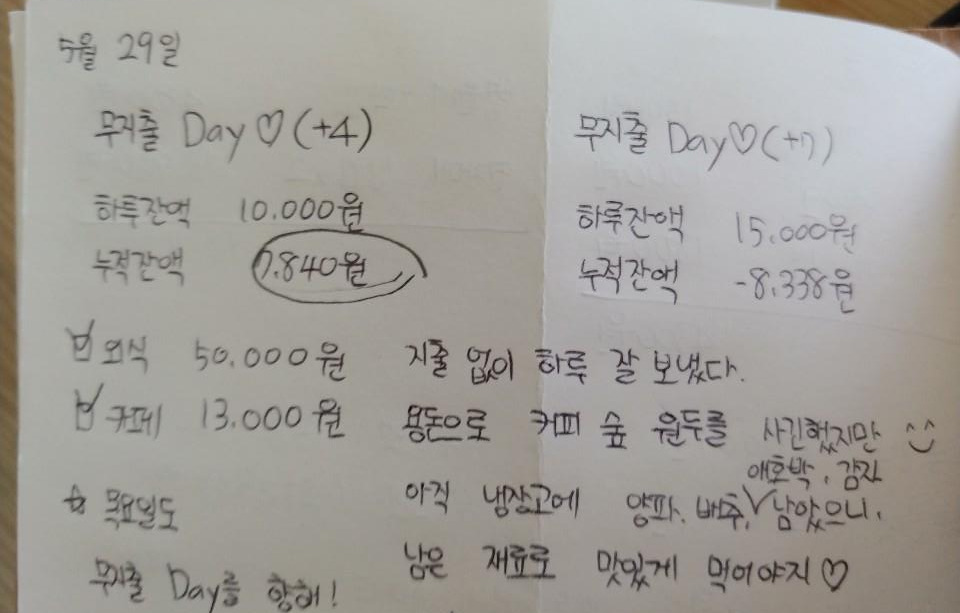 5월 29일
무지출 Day♡(+4)
하루잔액 10.000원
누적잔액 7.840원
무지출 Day♡(+7)
하루잔액 15.000원
누적잔액 -8.338원
외식 50.000원
커페 13.000원
☆ 목요일도
무지출 Day를 향해!
지출 없이 하루 잘 보냈다.
용돈으로 커피 숲 원두를 사긴했지만
애호박, 감자
아직 냉장고에 양파, 배추, ∨ 남았으니,
남은 재료로 맛있게 먹어야지♡